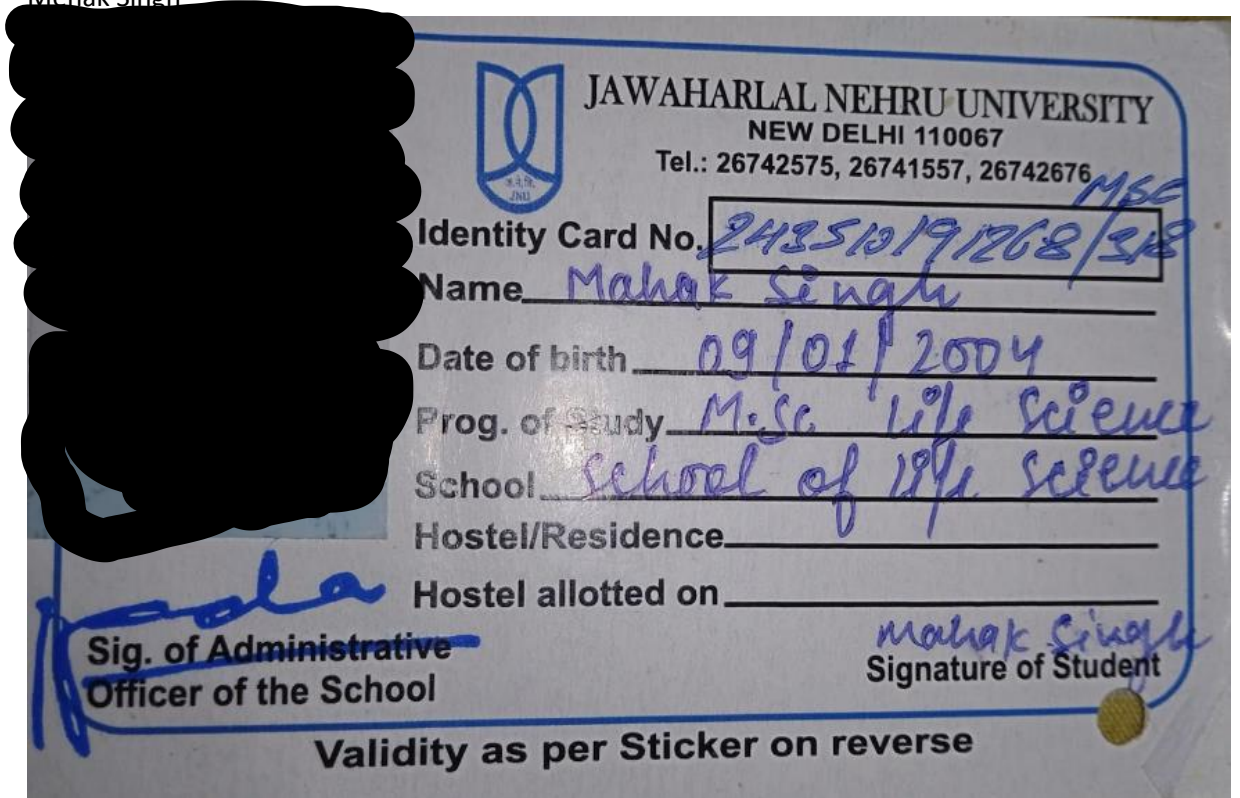 Mehak Singh
JAWAHARLAL NEHRU UNIVERSITY
NEW DELHI 110067
Tel.: 26742575, 26741557, 26742676
ज.ने.वि.
JNU
MSC
Identity Card No. 243510191268/318
Name Mahak Singh
Date of birth 09/01/2004
Prog. of Study M.Sc life science
School School of life science
Hostel/Residence
Hostel allotted on
Mahak Singh
Sig. of Administrative
Officer of the School
Signature of Student
Validity as per Sticker on reverse